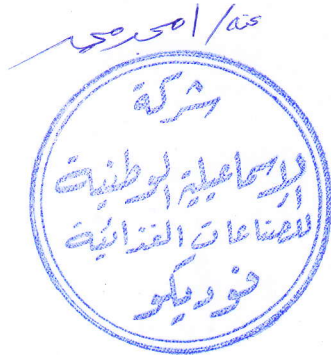 عنه /
شركة
الإسماعيلية الوطنية
للصناعات الغذائية
فوديكو